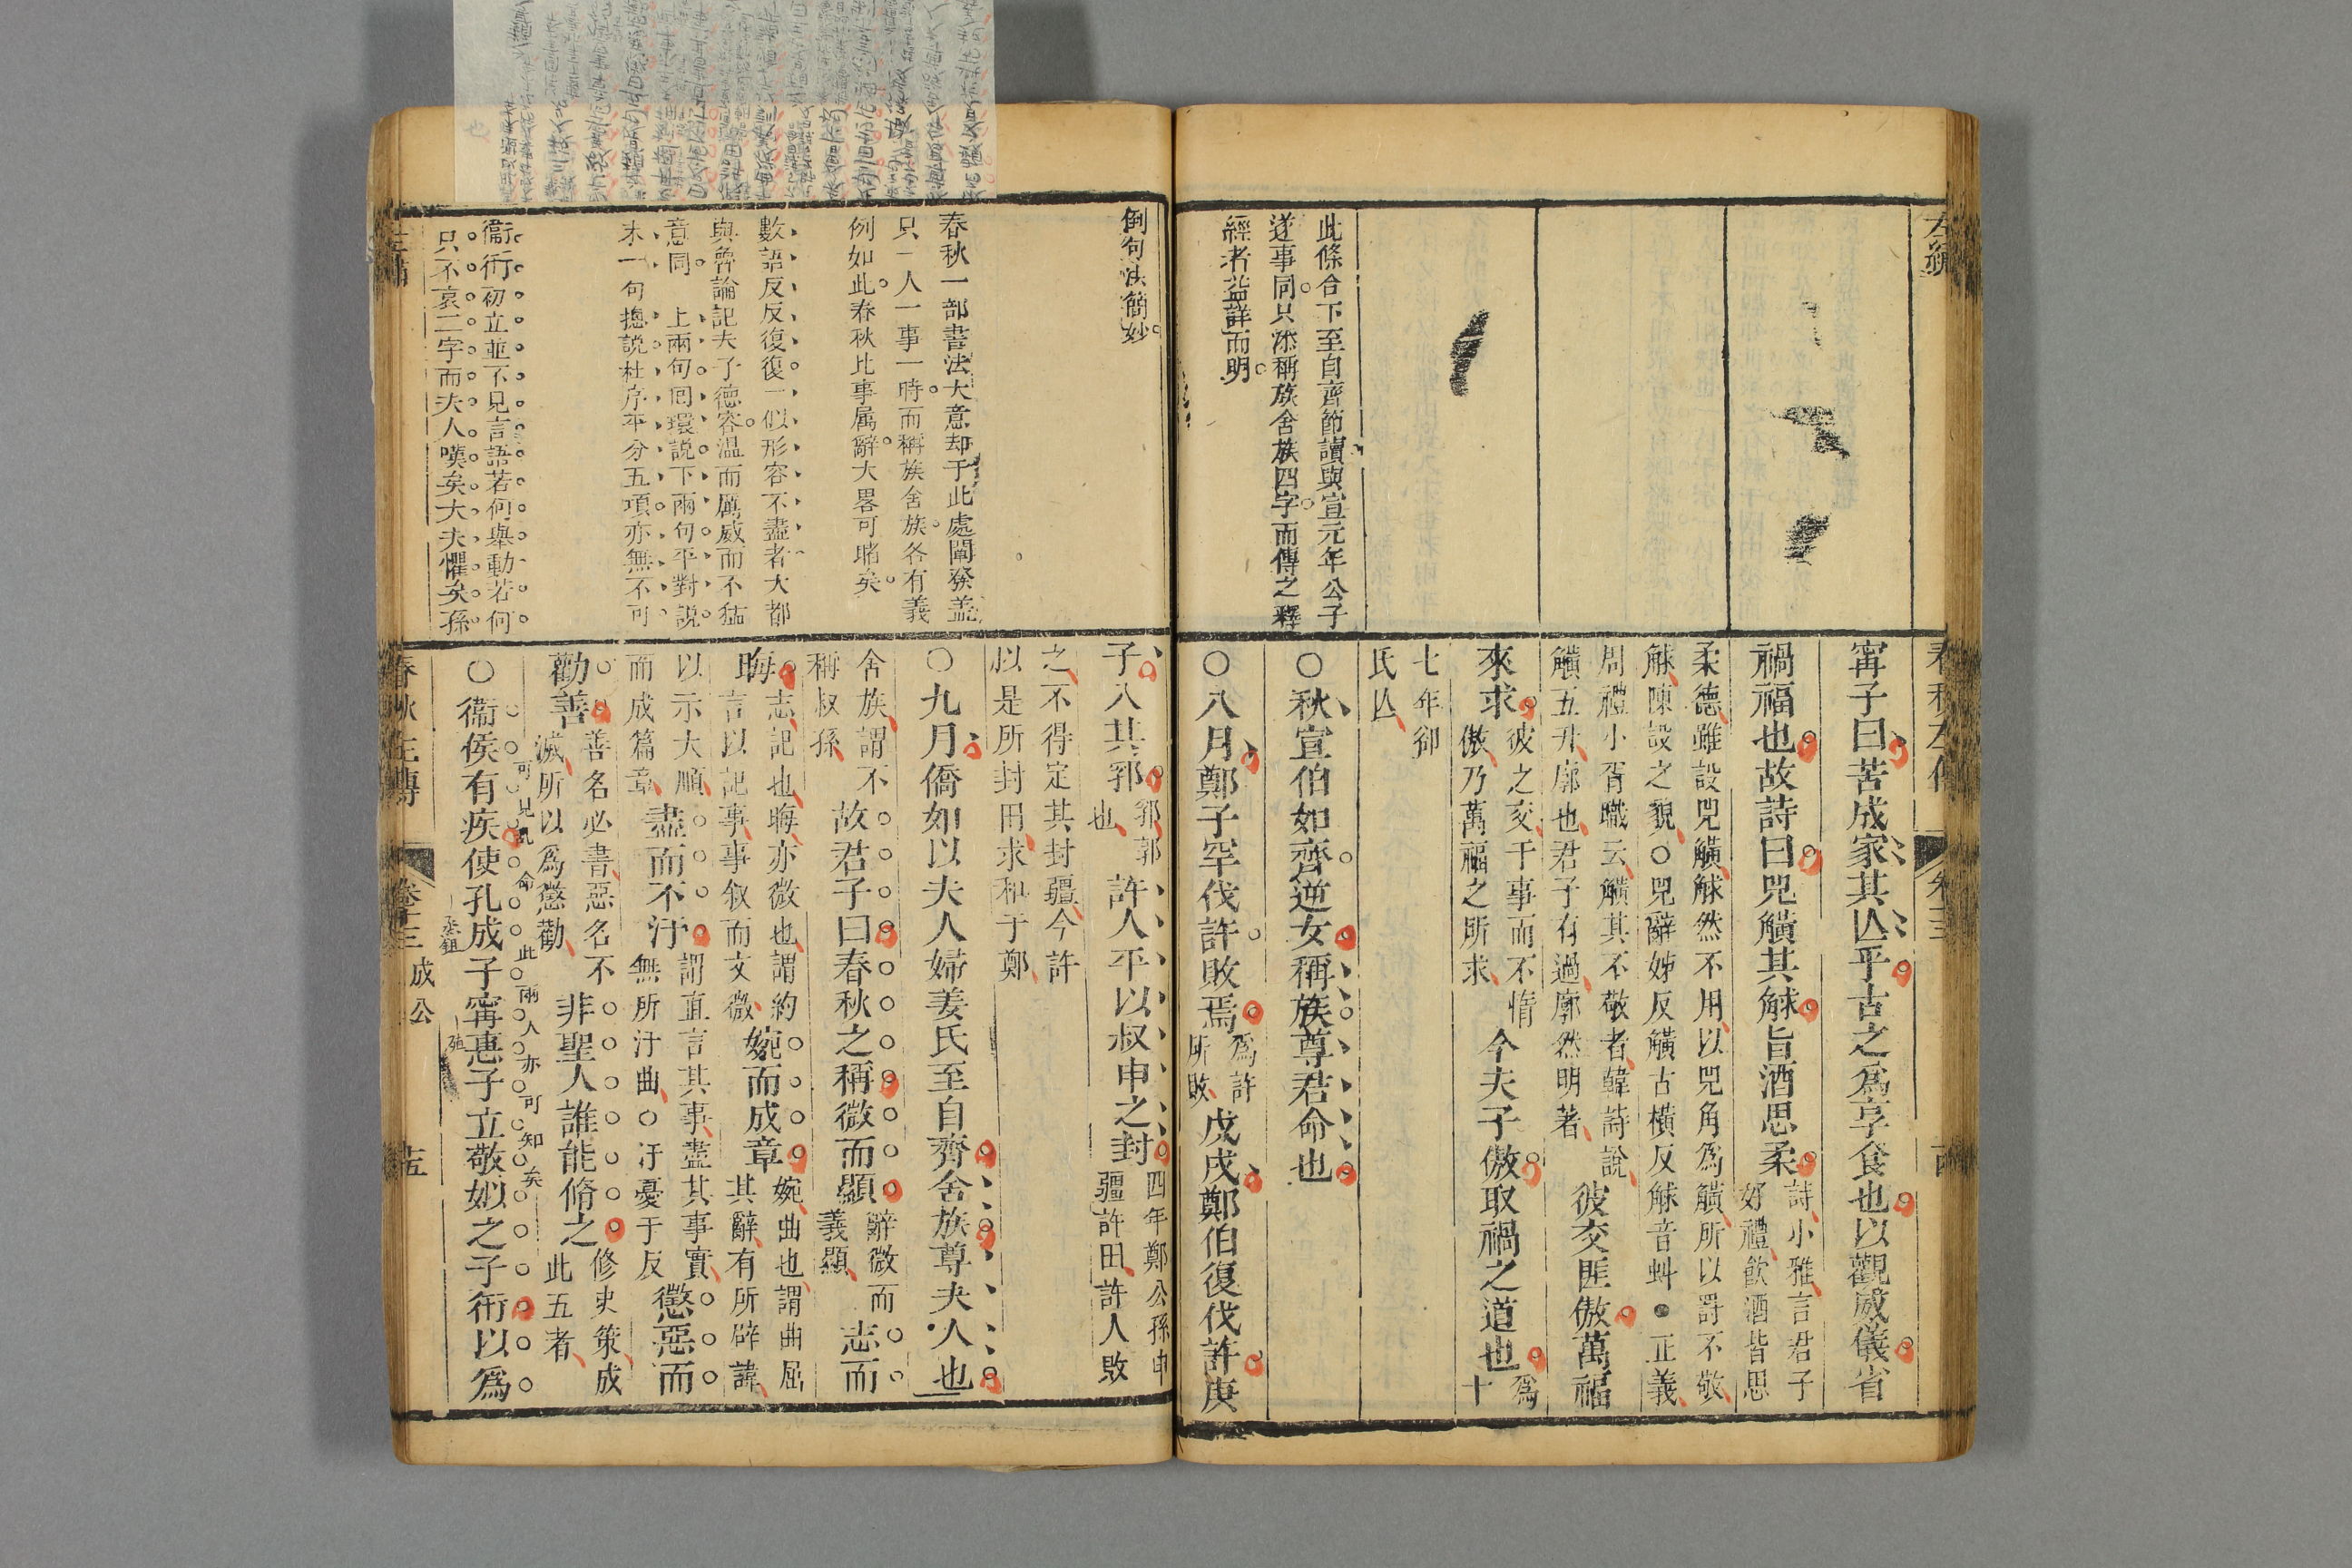 此條合下至自齊節讀與宣元年公子
遂事同只添稱族舍族四字而傳之釋
經者益詳而明
甯子曰苦成家其亾乎古之爲享食也以觀威儀省
禍福也故詩曰兕觵其觩旨酒思柔
詩小雅言君子
好禮飲酒皆思
柔德雖設兕觵觩然不用以兕角爲觵所以罰不敬
觩陳設之貌○兕辭姊反觵古橫反觩音虯●正義
周禮小胥職云觵其不敬者韓詩說
觵五升廓也君子有過廓然明著
彼交匪傲萬福
來求
彼之交于事而不惰
傲乃萬福之所求
今夫子傲取禍之道也
爲十
七年郤
氏亾
○秋宣伯如齊逆女稱族尊君命也
○八月鄭子罕伐許敗焉
爲許
所敗
戊戌鄭伯復伐許庚
倒句法簡妙
春秋一部書法大意却于此處闡發盖
只一人一事一時而稱族舍族各有義
例如此春秋比事属辭大畧可睹矣
數語反反復復一似形容不盡者大都
與魯論記夫子德容温而厲威而不猛
意同 上兩句囘環説下兩句平對説
末一句揔説杜序平分五項亦無不可
衞衎初立並不見言語若何舉動若何
只不哀二字而夫人嘆矣大夫懼矣孫
子入其郛
郛郭
也
許人平以叔申之封
四年鄭公孫申
疆許田許人敗
之不得定其封疆今許
以是所封田求和于鄭
○九月僑如以夫人婦姜氏至自齊舍族尊夫人也
舍族謂不
稱叔孫
故君子曰春秋之稱微而顯
辭微而
義顯
志而
晦
志記也晦亦微也謂約
言以記事事叙而文微
婉而成章
婉曲也謂曲屈
其辭有所辟諱
以示大順
而成篇章
盡而不汙
謂直言其事盡其事實
無所汙曲○汙憂于反
懲惡而
勸善
善名必書惡名不
滅所以爲懲勸
非聖人誰能脩之
修史策成
此五者
可見亂命此兩人亦可知矣
○衞侯有疾使孔成子甯惠子立敬姒之子衎以爲
春秋左傳 卷十三 成公 十五